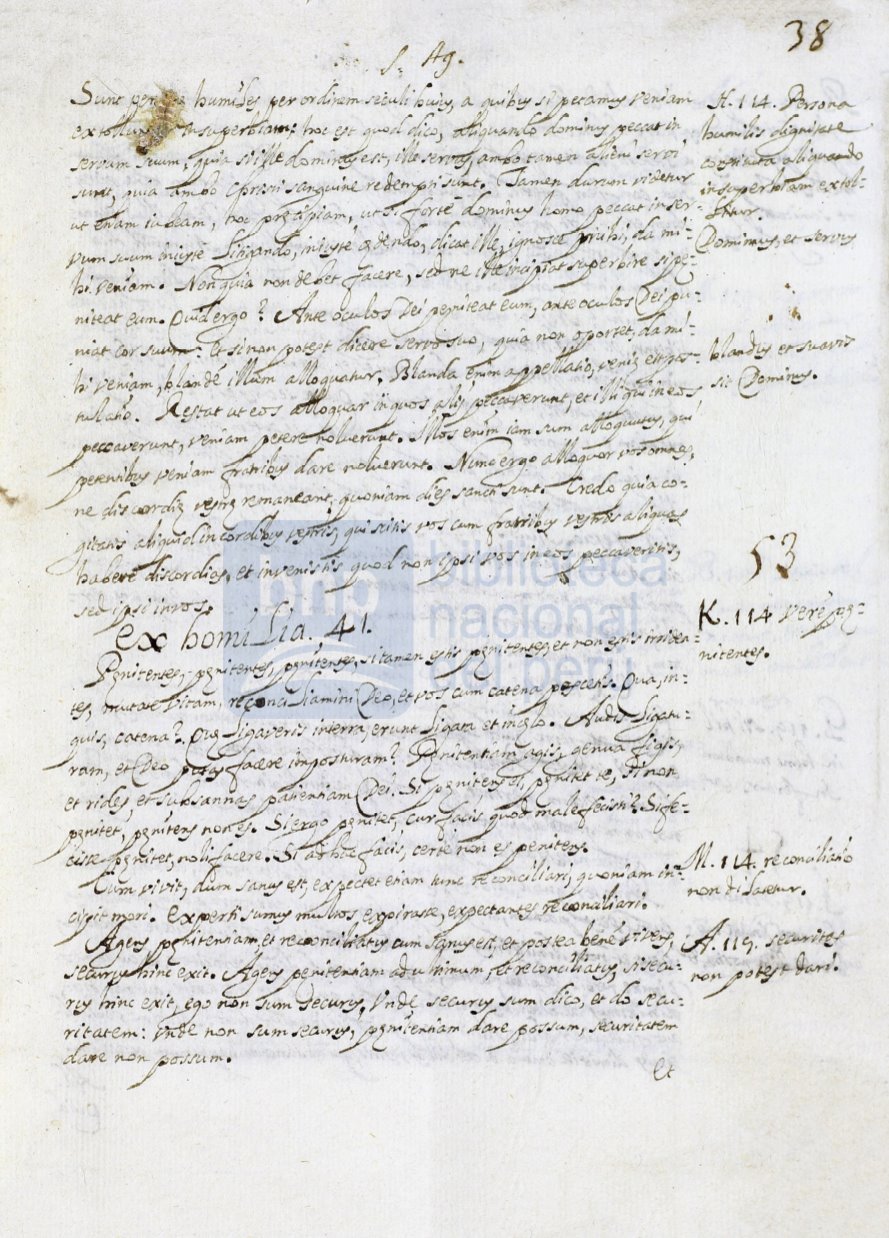 38
S. Ag.
Sunt personę humiles per ordinem seculi huius, a quibus si petamus veniam
extolluntur in superbiam: hoc est quod dico, aliquando dominus peccat in
servum suum, quia si ille dominus est, ille servus, ambo tamen alieni servi
sunt, quia ambo Christi sanguine redempti sunt. Tamen durum videtur
ut etiam iubeam, hoc pręcipiam, ut si forte dominus homo peccat in ser-
vum suum iniuste litigando, iniuste cędendo, dicat ille, ignosce mihi, da mi-
hi veniam. Non quia non debet facere, sed ne ille incipiat superbire si pę-
niteat eum. Quid ergo? Ante oculos Dei pęniteat eum, ante oculos Dei pu-
niat cor suum: et si non potest dicere servo suo, quia non oportet, da mi-
hi veniam, blandè illum alloquatur. Blanda enim appellatio, venię est pos-
tulatio. Restat ut eos alloquar in quos alij peccaverunt, et illi qui in eos
peccaverunt, veniam petere noluerunt. Illos enim iam sum alloquutus, qui
petentibus veniam fratribus dare noluerunt. Nunc ergo alloquor vos omnes,
ne discordię vestrę remaneant, quoniam dies sancti sunt. Credo quia co-
gitatis aliquid in cordibus vestris, qui scitis vos cum fratribus vestris aliquas
habere discordias, et invenistis quod non ipsi vos in eos peccaveritis,
sed ipsi in vos.
ex homilia. 41.
Pęnitentes, pęnitentes, pęnitentes, si tamen estis pęnitentes, et non estis irriden-
tes, mutate vitam, reconciliamini Deo, et vos cum catena pascetis. Qua, in-
quis, catena? Quę ligaveris in terra, erunt ligata et in cęlo. Audis ligatu-
ram, et Deo putas facere imposturam? Pęnitentiam agis, genua figis,
et rides, et subsannas patientiam Dei. Si pęnitens es, pęnitet te, si non
pęnitet, pęnitens non es. Si ergo pęnitet, cur facis quod male fecisti? Si fe-
cisse pęnitet, noli facere. Si adhuc facis, certè non es penitens.
Cum vivit, dum sanus est, expectet etiam tunc reconciliari, quoniam in-
cipit mori. Experti sumus multos expirasse, expectantes reconciliari.
Agens pęnitentiam, et reconciliatus cum sanus est, et postea benè vivens,
securus hinc exit. Agens penitentiam ad ultimum, et reconciliatus, si secu-
rus hinc exit, ego non sum securus, Unde securus sum dico, et do secu-
ritatem: unde non sum securus, pęnitentiam dare possum, securitatem
dare non possum.
et
H. 114. Persona
humilis dignitate
constituta aliquando
in superbiam extol-
litur.
Dominus, et servus
blandus et suavis
sit Dominus.
53
K. 114 verè pę-
nitentes.
M. 114. reconciliatio
non differtur.
A. 115. securitas
non potest dari.
bnp biblioteca
nacional
del perú